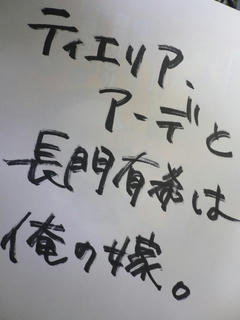 ティエリア、
アーデと
長門有希は
俺の嫁。